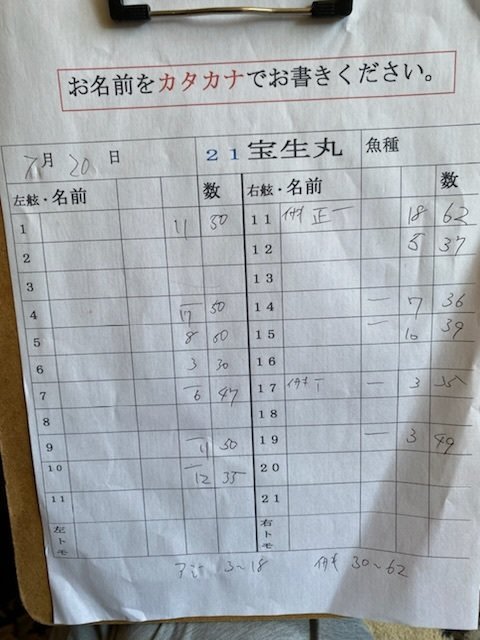 お名前をカタカナでお書きください。
7月 20 日 21宝生丸 魚種
左舷・名前 数 右舷・名前 数
1 11 50 11 正一 18 62
2 12 5 37
3 13
4 一 17 50 14 一 7 36
5 8 60 15 一 10 39
6 3 30 16
7 一 6 47 17 一 3 35
8 18
9 一 11 50 19 一 3 49
10 一 12 35 20
11 21
左トモ 右トモ
3～18 30～62